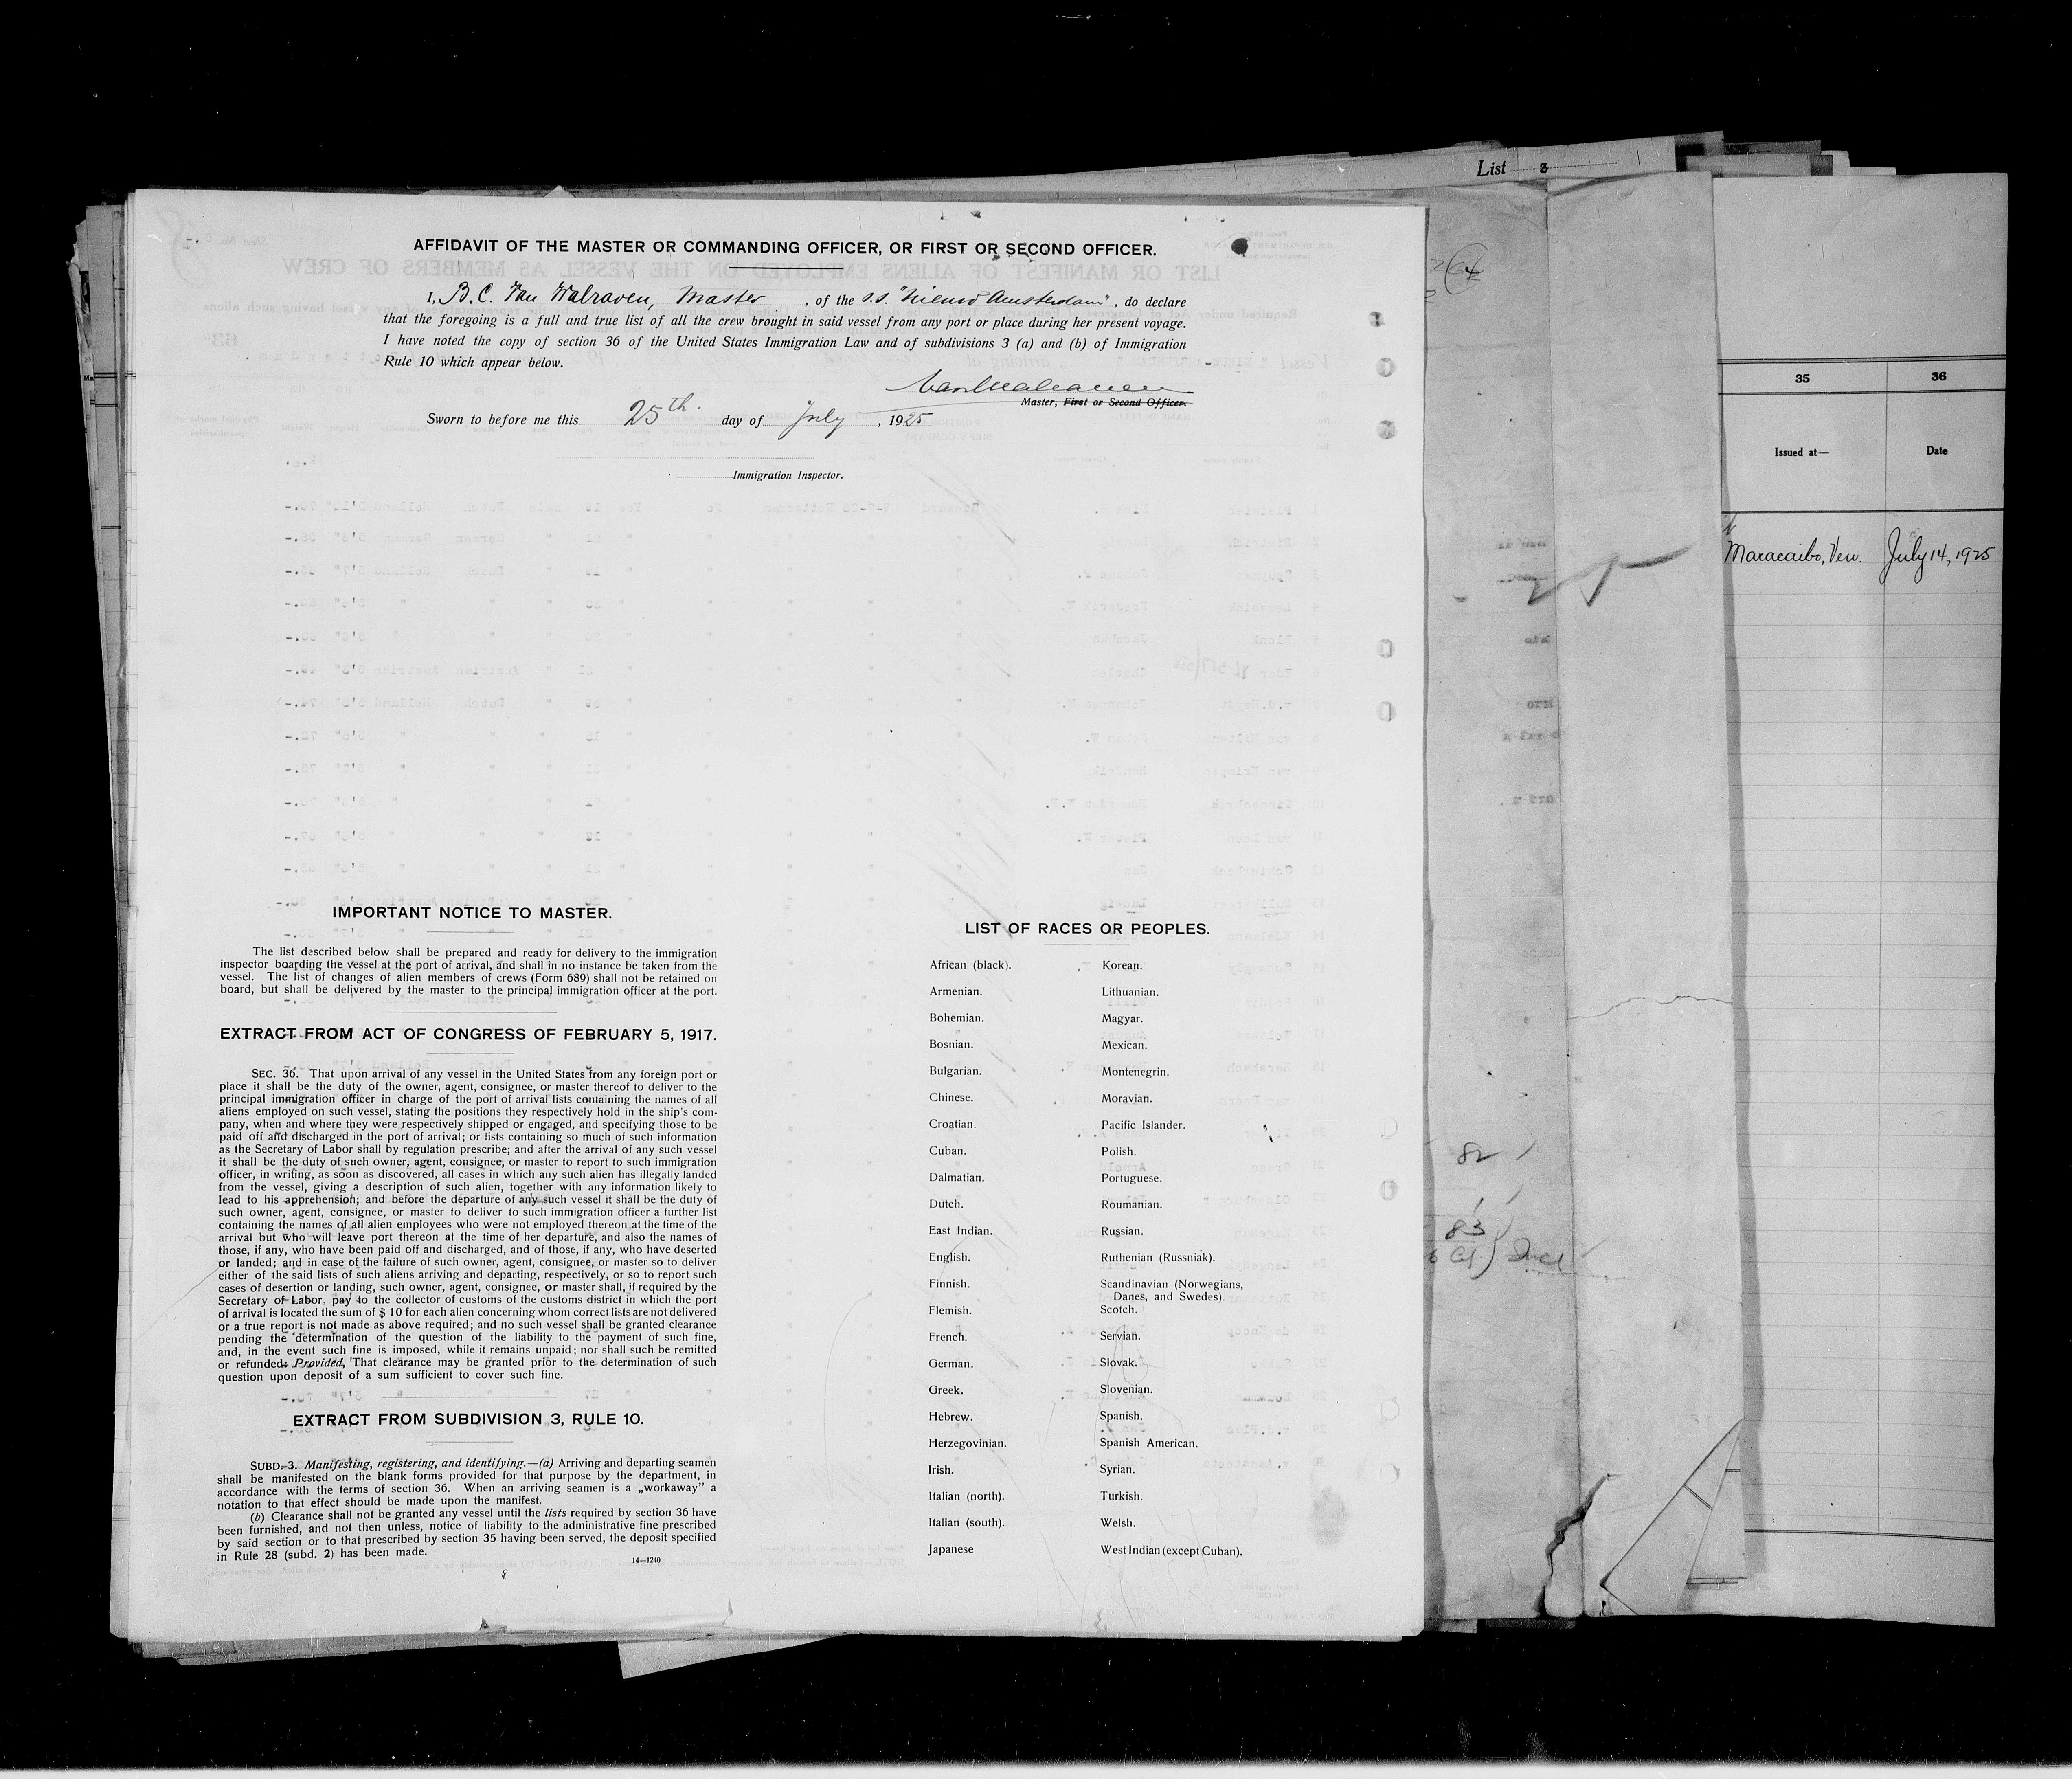 List 3
AFFIDAVIT OF THE MASTER OR COMMANDING OFFICER, OR FIRST OR SECOND OFFICER.
I, B.C. Van Walraven, Master, of the s.s. "Nieuw Amsterdam", do declare
that the foregoing is a full and true list of all the crew brought in said vessel from any port or place during her present voyage.
I have noted the copy of section 36 of the United States Immigration Law and of subdivisions 3 (a) and (b) of Immigration
Rule 10 which appear below.
VanWalraven
Master, First or Second Officer.
Sworn to before me this 25th. day of July, 1925
Immigration Inspector.
IMPORTANT NOTICE TO MASTER.
The list described below shall be prepared and ready for delivery to the immigration
inspector boarding the vessel at the port of arrival, and shall in no instance be taken from the
vessel. The list of changes of alien members of crews (Form 689) shall not be retained on
board, but shall be delivered by the master to the principal immigration officer at the port.
EXTRACT FROM ACT OF CONGRESS OF FEBRUARY 5, 1917.
SEC. 36. That upon arrival of any vessel in the United States from any foreign port or
place it shall be the duty of the owner, agent, consignee, or master thereof to deliver to the
principal immigration officer in charge of the port of arrival lists containing the names of all
aliens employed on such vessel, stating the positions they respectively hold in the ship's com-
pany, when and where they were respectively shipped or engaged, and specifying those to be
paid off and discharged in the port of arrival; or lists containing so much of such information
as the Secretary of Labor shall by regulation prescribe; and after the arrival of any such vessel
it shall be the duty of such owner, agent, consignee, or master to report to such immigration
officer, in writing, as soon as discovered, all cases in which any such alien has illegally landed
from the vessel, giving a description of such alien, together with any information likely to
lead to his apprehension; and before the departure of any such vessel it shall be the duty of
such owner, agent, consignee, or master to deliver to such immigration officer a further list
containing the names of all alien employees who were not employed thereon at the time of the
arrival but who will leave port thereon at the time of her departure, and also the names of
those, if any, who have been paid off and discharged, and of those, if any, who have deserted
or landed; and in case of the failure of such owner, agent, consignee, or master so to deliver
either of the said lists of such aliens arriving and departing, respectively, or so to report such
cases of desertion or landing, such owner, agent, consignee, or master shall, if required by the
Secretary of Labor, pay to the collector of customs of the customs district in which the port
of arrival is located the sum of $ 10 for each alien concerning whom correct lists are not delivered
or a true report is not made as above required; and no such vessel shall be granted clearance
pending the determination of the question of the liability to the payment of such fine,
and, in the event such fine is imposed, while it remains unpaid; nor shall such be remitted
or refunded: Provided, That clearance may be granted prior to the determination of such
question upon deposit of a sum sufficient to cover such fine.
EXTRACT FROM SUBDIVISION 3, RULE 10.
SUBD. 3. Manifesting, registering, and identifying.—(a) Arriving and departing seamen
shall be manifested on the blank forms provided for that purpose by the department, in
accordance with the terms of section 36. When an arriving seamen is a „workaway” a
notation to that effect should be made upon the manifest.
(b) Clearance shall not be granted any vessel until the lists required by section 36 have
been furnished, and not then unless, notice of liability to the administrative fine prescribed
by said section or to that prescribed by section 35 having been served, the deposit specified
in Rule 28 (subd. 2) has been made.
14—1240
LIST OF RACES OR PEOPLES.
African (black).
Armenian.
Bohemian.
Bosnian.
Bulgarian.
Chinese.
Croatian.
Cuban.
Dalmatian.
Dutch.
East Indian.
English.
Finnish.
Flemish.
French.
German.
Greek.
Hebrew.
Herzegovinian.
Irish.
Italian (north).
Italian (south).
Japanese
Korean.
Lithuanian.
Magyar.
Mexican.
Montenegrin.
Moravian.
Pacific Islander.
Polish.
Portuguese.
Roumanian.
Russian.
Ruthenian (Russniak).
Scandinavian (Norwegians,
Danes, and Swedes).
Scotch.
Servian.
Slovak.
Slovenian.
Spanish.
Spanish American.
Syrian.
Turkish.
Welsh.
West Indian (except Cuban).
82
83
35
36
Issued at—
Date
Maracaibo, Ven.
July 14, 1925